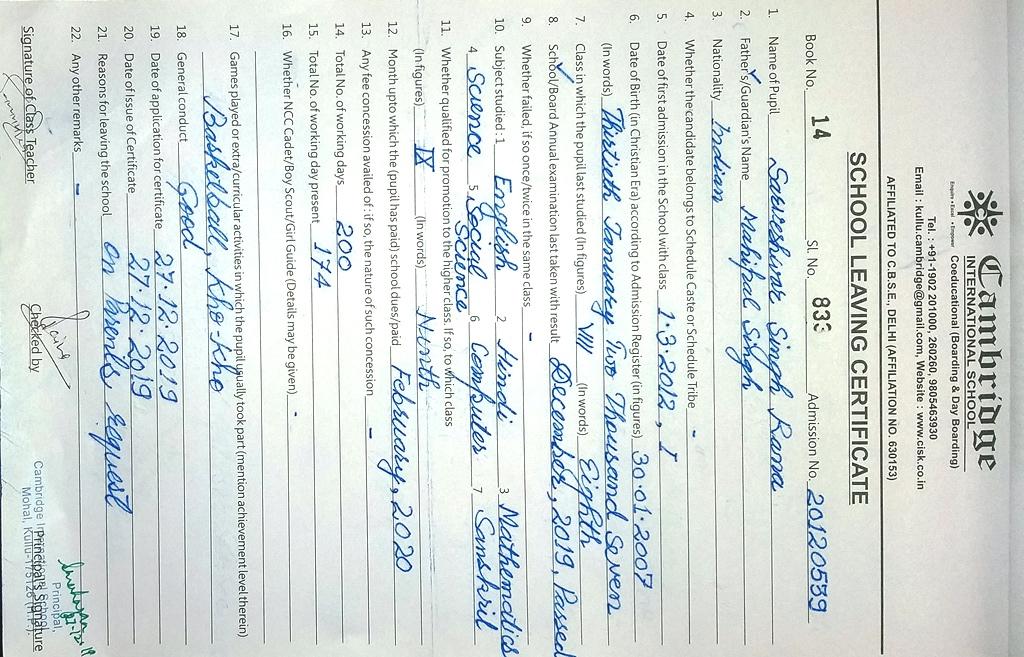 Cambridge
INTERNATIONAL SCHOOL
Enquire • Excel • Empower
Coeducational (Boarding & Day Boarding)
Tel : +91-1902 201000, 260260, 9805463930
Email : kullu.cambridge@gmail.com, Website : www.cisk.co.in
AFFILIATED TO C.B.S.E., DELHI (AFFILIATION NO. 630153)
SCHOOL LEAVING CERTIFICATE
Book No. 14 Sl. No. 833 Admission No. 20120559
1. Name of Pupil Sarveshwar Singh Rana
2. Father's/Guardian's Name Mahipal Singh
3. Nationality Indian
4. Whether the candidate belongs to Schedule Caste or Schedule Tribe -
5. Date of first admission in the School with class 1.3.2012, I
6. Date of Birth (in Christian Era) according to Admission Register (in figures) 30.01.2007
(In words) Thirtieth January Two Thousand Seven
7. Class in which the pupil last studied (In figures) VIII (In words) Eighth
8. School/Board Annual examination last taken with result December, 2019, Passed
9. Whether failed, if so once/twice in the same class -
10. Subject studied : 1 English 2 Hindi 3 Mathematics
4 Science 5 Social Science 6 Computer 7 Sanskrit
11. Whether qualified for promotion to the higher class. If so, to which class
(In figures) IX (In words) Ninth
12. Month upto which the (pupil has paid) school dues/paid February, 2020
13. Any fee concession availed of : if so, the nature of such concession -
14. Total No. of working days 200
15. Total No. of working day present 174
16. Whether NCC Cadet/Boy Scout/Girl Guide (Details may be given) -
17. Games played or extra/curricular activities in which the pupil usually took part (mention achievement level therein)
Basketball, Kho-Kho
18. General conduct Good
19. Date of application for certificate 27.12.2019
20. Date of Issue of Certificate 27.12.2019
21. Reasons for leaving the school On Parents request
22. Any other remarks -
27-12-19
Signature of Class Teacher Checked by Principal's Signature
Principal,
Cambridge International School
Mohal, Kullu-175126 (H.P.).